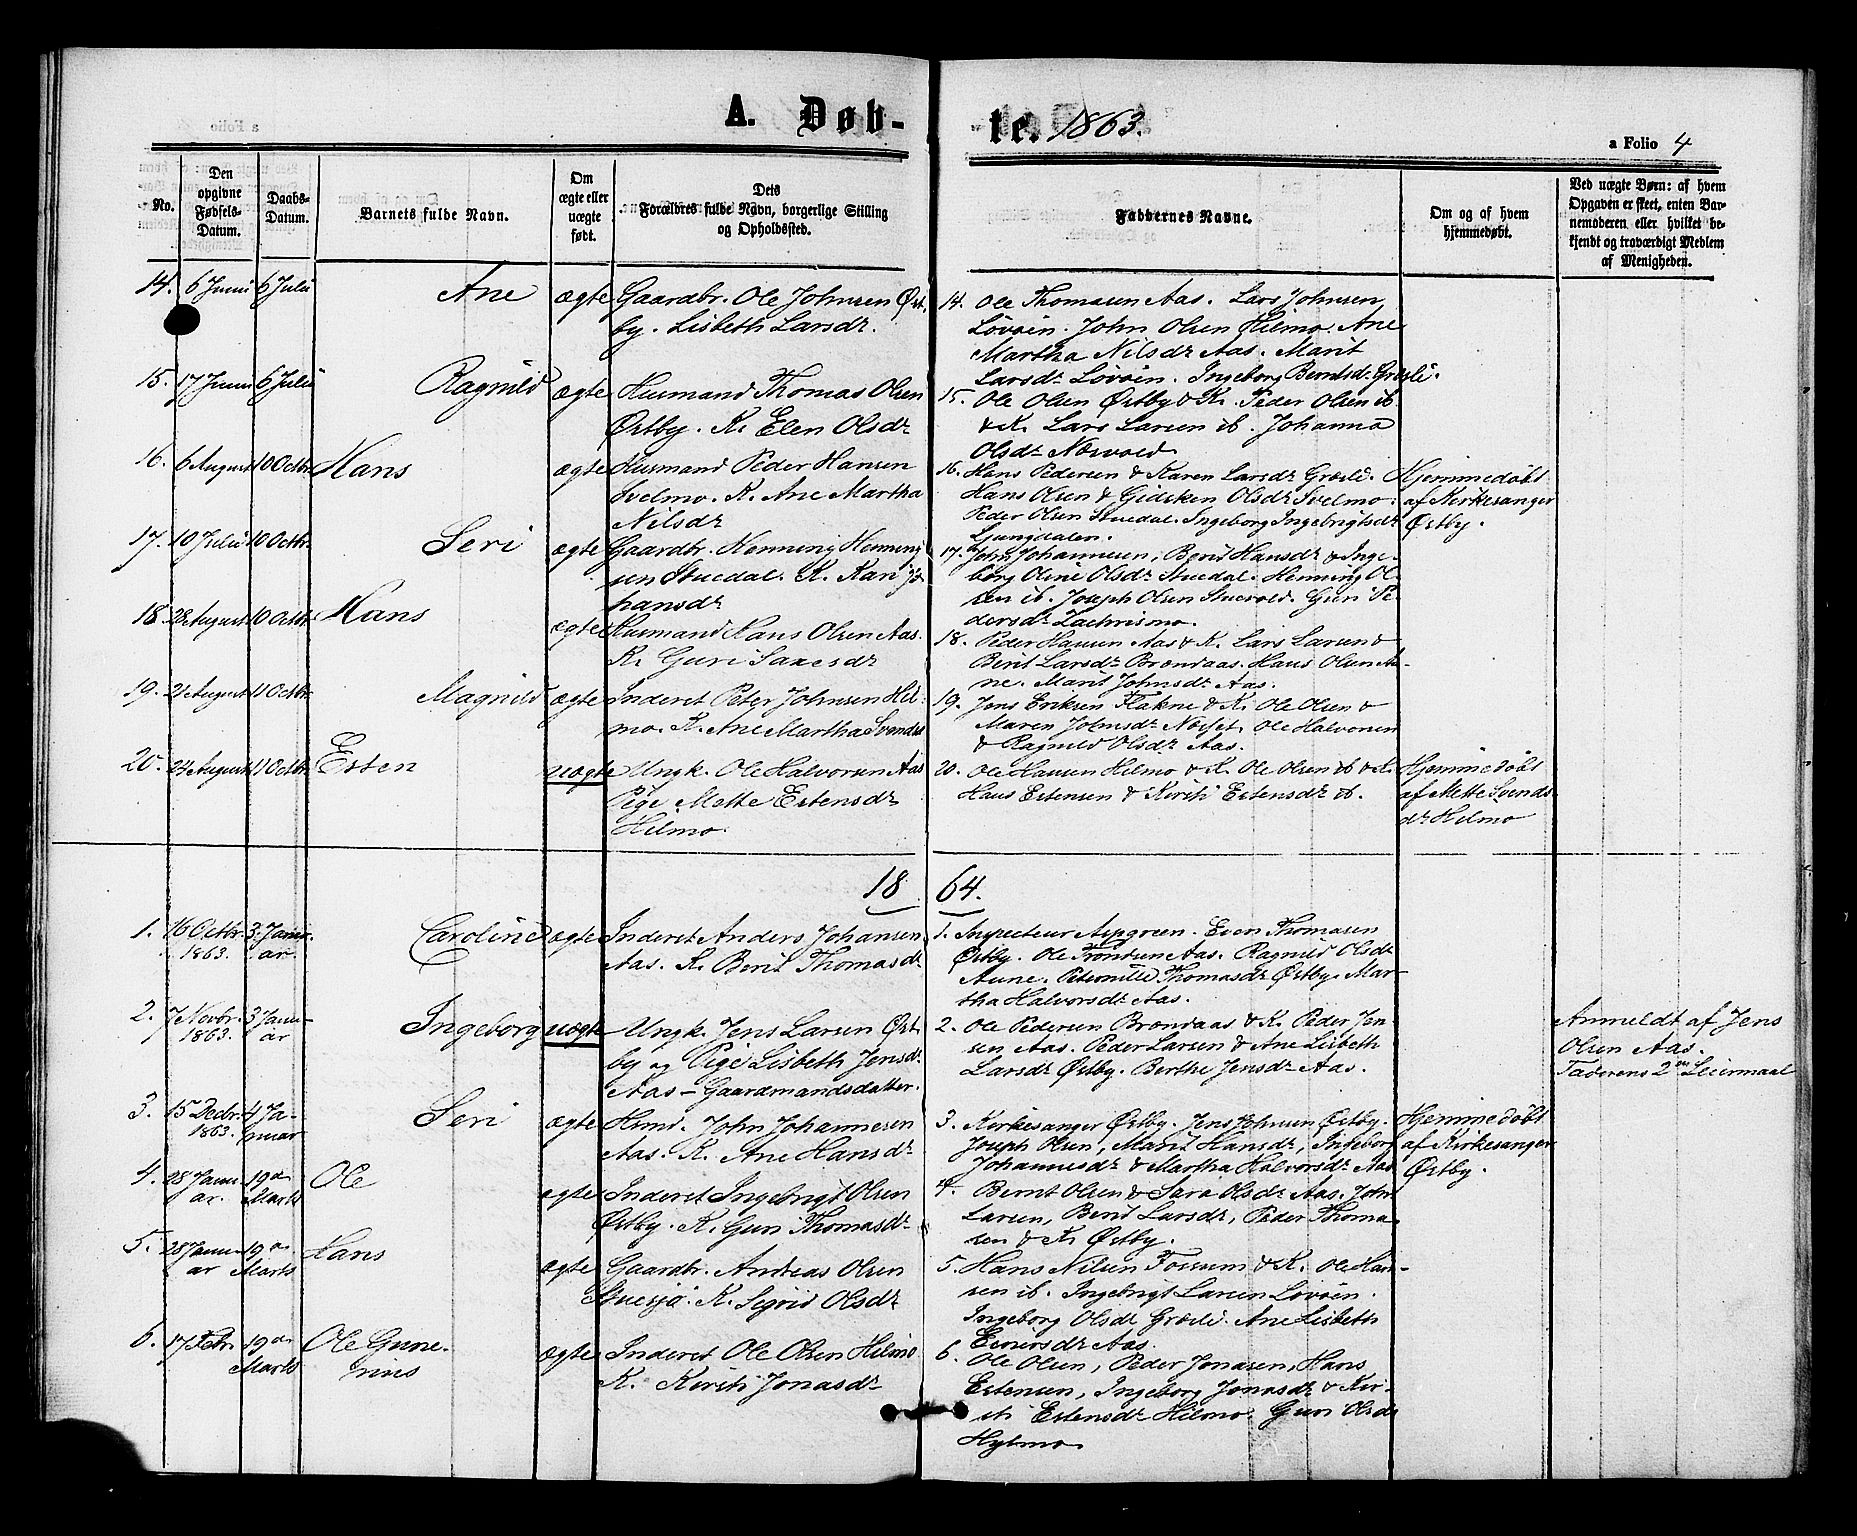 A. Døb-
te. 1863.
a Folio 4
No.
Den
opgivne
Fødsels-
Datum.
Daabs-
Datum.
Barnets fulde Navn.
Om
ægte eller
uægte
født.
Dets
Forældres fulde Navn, borgerlige Stilling
og Opholdssted.
Faddernes Navne.
Om og af hvem
hjemmedøbt.
Ved uægte Børn: af hvem
Opgaven er skeet, enten Bar-
nemoderen eller hvilket be-
kjendt og troværdigt Medlem
af Menigheden.
14. 6 Juni 6 Juli Ane ægte Gaardbr. Ole Johnsen Øst-
by. Lisbeth Larsdr.
14. Ole Thomasen Aas. Lars Johnsen
Løvøen. John Olsen Hilmo. Ane
Martha Nilsdr Aas. Marit
Larsdr Løvøen. Ingeborg Berntsdr Græsli.
15. 17 Juni 6 Juli Ragnild ægte Husmand Thomas Olsen
Østby. K. Elen Olsdr
15. Ole Olsen Østby & K. Peder Olsen ib
& K. Lars Larsen ib. Johanna
Olsdr Nævold
16. 6 August 10 Octbr. Hans ægte Husmand Peder Hansen
Svelmo. K. Ane Martha
Nilsdr
16. Hans Pedersen & Karen Larsdr Græsli.
Hans Olsen & Gidsken Olsdr Svelmo.
Peder Olsen Stuedal. Ingeborg Ingebrigtsdr
Ljungdalen.
Hjemmedøbt
af Kirkesanger
Østby.
17. 10 Juli 10 Octbr. Seri ægte Gaardbr. Henning Henning-
sen Stuedal. K. Kari Jo-
hansdr
17. John Johannesen, Berit Hansdr & Inge-
borg Oline Olsdr Stuedal. Henning Ol-
sen ib. Joseph Olsen Stuevold. Guri Pe-
dersdr Zachrismo.
18. 28 August 10 Octbr. Hans ægte Husmand Hans Olsen Aas.
K. Guri Saxesdr
18. Peder Hansen Aas & K. Lars Larsen &
Berit Larsdr Brændaas. Hans Olsen Au-
ne. Marit Johnsdr Aas.
19. 21 August 11 Octbr. Magnild ægte Inderst Peter Johnsen Hil-
mo. K. Ane Martha Svendsd
19. Jens Eriksen Flakne & K. Ole Olsen &
Maren Johnsdr Næsset. Ole Halvorsen
& Ragnild Olsdr Aas.
20. 24 August 11 Octbr. Esten uægte Ungk. Ole Halvorsen Aas
Pige Mette Estensdr
Hilmo.
20. Ole Hansen Hilmo & K. Ole Olsen ib & K.
Hans Estensen & Kirsti Estensdr ib.
Hjemmedøbt
af Mette Svends
dr Hilmo
18 64.
1. 16 Octbr. 3 Janu-
1863. ar.
Caroline ægte Inderst Anders Johansen
Aas. K. Berit Thomasdr
1. Inspecteur Aspgreen. Even Thomasen
Østby. Ole Trondsen Aas. Ragnild Olsdr
Aune. Peternille Thomasdr Østby. Mar-
tha Halvorsdr Aas.
2. 7 Novbr. 3 Janu-
1863. ar
Ingeborg uægte Ungk. Jens Larsen Øst-
by og Pige Lisbeth Jensdr
Aas - Gaardmandsdatter.
2. Ole Pedersen Brændaas & K. Peder Jen-
sen Aas. Peder Larsen & Ane Lisbeth
Larsdr Østby. Berthe Jensdr Aas.
Anmeldt af Jens
Olsen Aas.
Faderens 2det Leiermaal
3. 15 Decbr. 4 Ja-
1863. nuar
Seri ægte Hsmd. John Johannesen
Aas. K. Ane Hansdr
3. Kirkesanger Østby. Jens Johnsen Østby.
Joseph Olsen, Marit Hansdr, Ingeborg
Johannesdr & Martha Halvorsdr Aas
Hjemmedøbt
af Kirkesanger
Østby.
4. 28 Janu- 19de
ar. Marts
Ole ægte Inderst Ingebrigt Olsen
Østby. K. Guri Thomasdr
4. Bernt Olsen & Sara Olsdr Aas. John
Larsen, Berit Larsdr, Peder Thoma-
sen & K. Østby.
5. 28 Janu- 19de
ar Marts
Hans ægte Gaardbr. Andreas Olsen
Stuesjø. K. Sigrid Olsdr
5. Hans Nilsen Fossum & K. Ole Han-
sen ib. Ingebrigt Larsen Løvøen.
Ingeborg Olsdr Græsli. Ane Lisbeth
Einersdr Aas.
6. 17 Febr. 19de
Marts
Ole Gune-
rius
ægte Inderst Ole Olsen Hilmo
K. Kirsti Jonasdr
6. Ole Olsen, Peder Jonasen, Hans
Estensen, Ingeborg Jonasdr & Kir-
sti Estensdr Hilmo. Guri Olsdr
Hylmo.